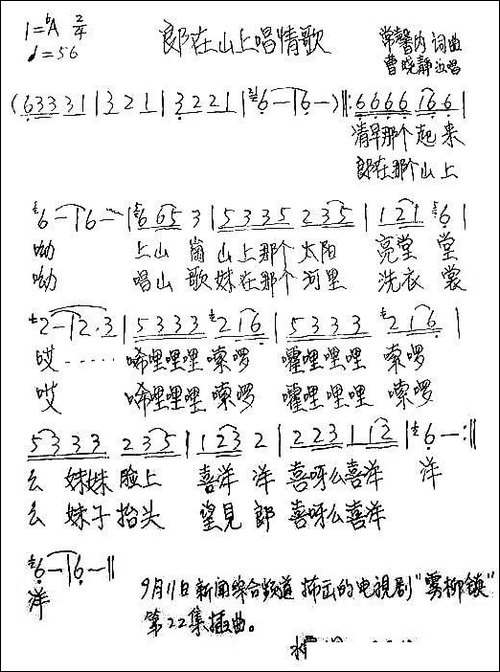 1=bA 2/4
♩=56
郎在山上唱情歌
常馨内 词曲
曹晓静 演唱
(63331|321|3221|6-|6-)‖:6666 166|
清早那个起来
郎在那个山上
6-|6-|665 3|5335 235|121 6|
呦 上山 崗 山上那个 太阳 亮堂 堂
呦 唱山 歌 妹在那个 河里 洗衣 裳
2-|2·3|5333 216|5333 216|
哎······ 唏哩哩哩 嗦啰 嚯哩哩哩 嗦啰
哎 唏哩哩哩 嗦啰 嚯哩哩哩 嗦啰
5333 235|123 2|223 112|6-:‖
么 妹妹 脸上 喜洋 洋 喜呀么喜洋 洋
么 妹子 抬头 望見 郎 喜呀么喜洋
6-|6-‖
洋
9月11日新闻综合频道 播出的电视剧"雾柳镇"
第22集插曲。